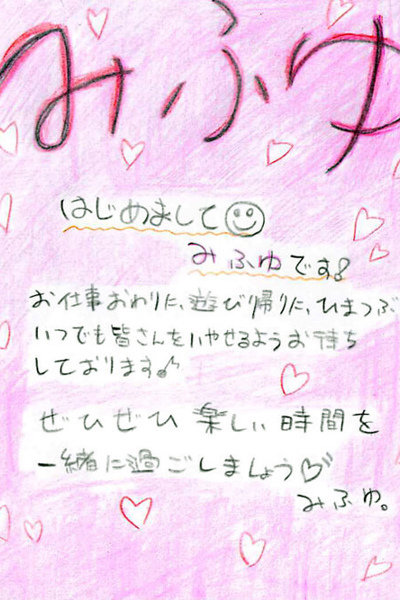 みふゆ
はじめまして
みふゆです!
お仕事おわりに、遊び帰りに、ひまつぶ
いつでも皆さんをいやせるようお待ち
しております♪
ぜひぜひ 楽しい時間を
一緒に過ごしましょう♡
みふゆ。